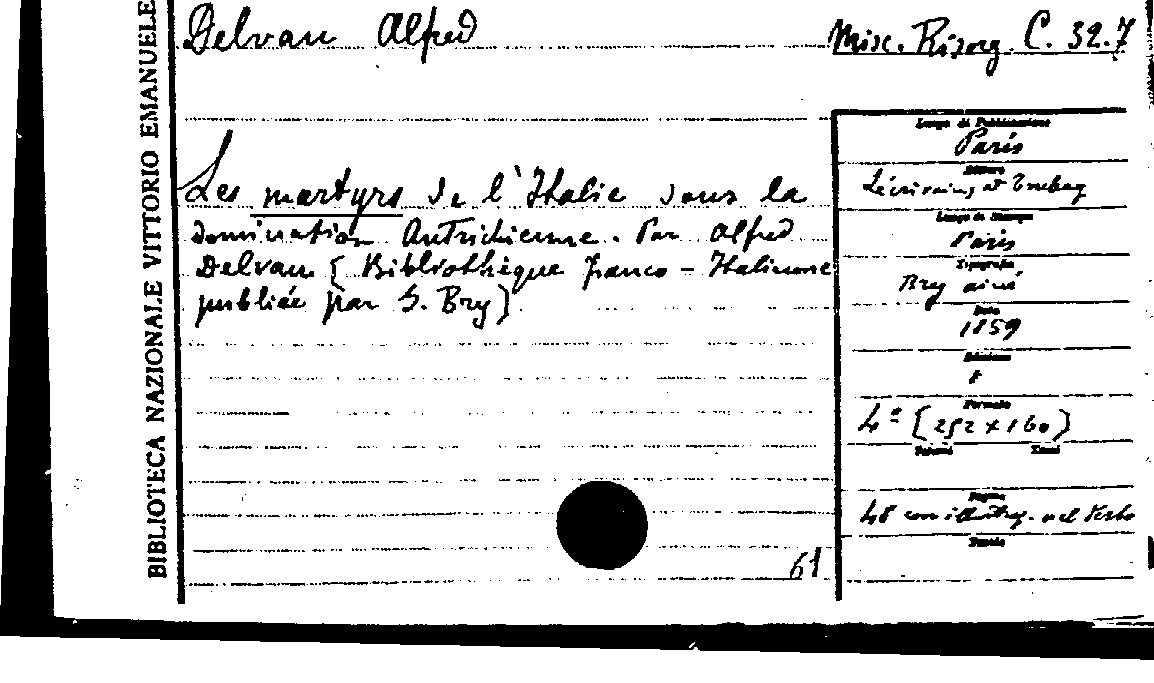 Delvau Alfred
Misc. Risorg. C. 32.7
BIBLIOTECA NAZIONALE VITTORIO EMANUELE
Les martyrs de l'Italie sous la
domination Autrichienne. Par Alfred
Delvau [Bibliothèque franco-Italienne
publiée par G. Bry]
61
Luogo di Pubblicazione
Paris
Editore
Lécrivain, et Toubon
Luogo di Stampa
Paris
Tipografia
Bry ainé
Data
1859
Edizione
Formato
4º [252 x 160]
Volumi Tomi
Pagine
48 con illustraz. nel testo
Tavole